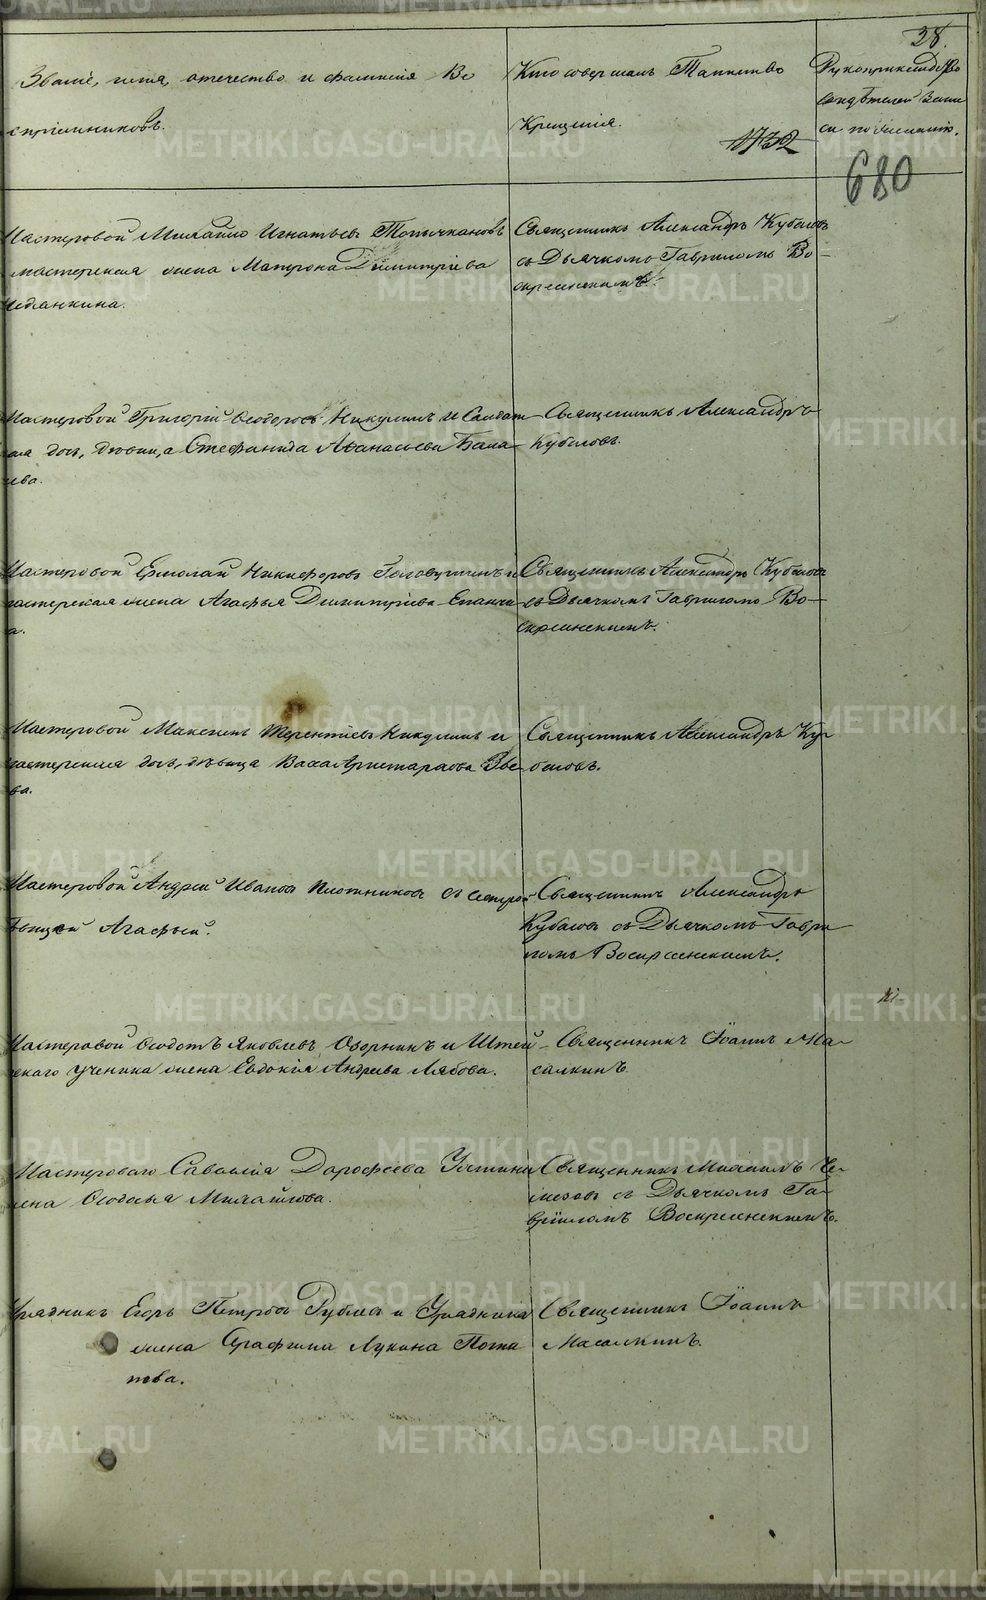 28.
Званіе, имя, отечество и фамилія Во
спріемниковъ.
Кто совершалъ Таинство
Крещенія.
1732
Рукоприкладство
свидѣтелей запи
си по желанію.
680
Мастеровой Михайло Игнатьевъ Топычкановъ
мастерская жена Матрона Димитріева
Священникъ Александръ Кубасовъ
съ Дьячкомъ Гавріиломъ Во-
скресенскимъ.
Мастеровой Григорій Ѳеодоровъ Никулинъ и Солдат
ская дочь, дѣвица Стефанида Аѳанасьева
Священникъ Александръ
Кубасовъ.
Мастеровой Ермолай Никифоровъ и
мастерская жена Агафья Димитріева
Священникъ Александръ Кубасовъ
съ Дьячкомъ Гавріиломъ Во-
скресенскимъ.
Мастеровой Максимъ Терентіевъ Никулинъ и
мастерская дочь, дѣвица Васса Аристархова Зве
ва.
Священникъ Александръ Ку-
басовъ.
Мастеровой Андрей Ивановъ Плотниковъ съ сестрой
дѣвицей Агафьей.
Священникъ Александръ
Кубасовъ съ Дьячкомъ Гаврі
иломъ Воскресенскимъ.
Мастеровой Ѳеодотъ Яковлевъ Озорнинъ и Штей
скаго ученика жена Евдокія Андреева Лябова.
Священникъ Іоаннъ Ма-
салкинъ
Мастероваго Савватія Дорофеева Устинова
жена Ѳеодосья Михайлова.
Священникъ Михаилъ Че-
съ Дьячкомъ Га-
вріиломъ Воскресенскимъ.
Урядникъ Егоръ Петровъ Рублевъ и Урядника
жена Серафима Лукина Пота
пова.
Священникъ Іоаннъ
Масалкинъ.
METRIKI.GASO-URAL.RU